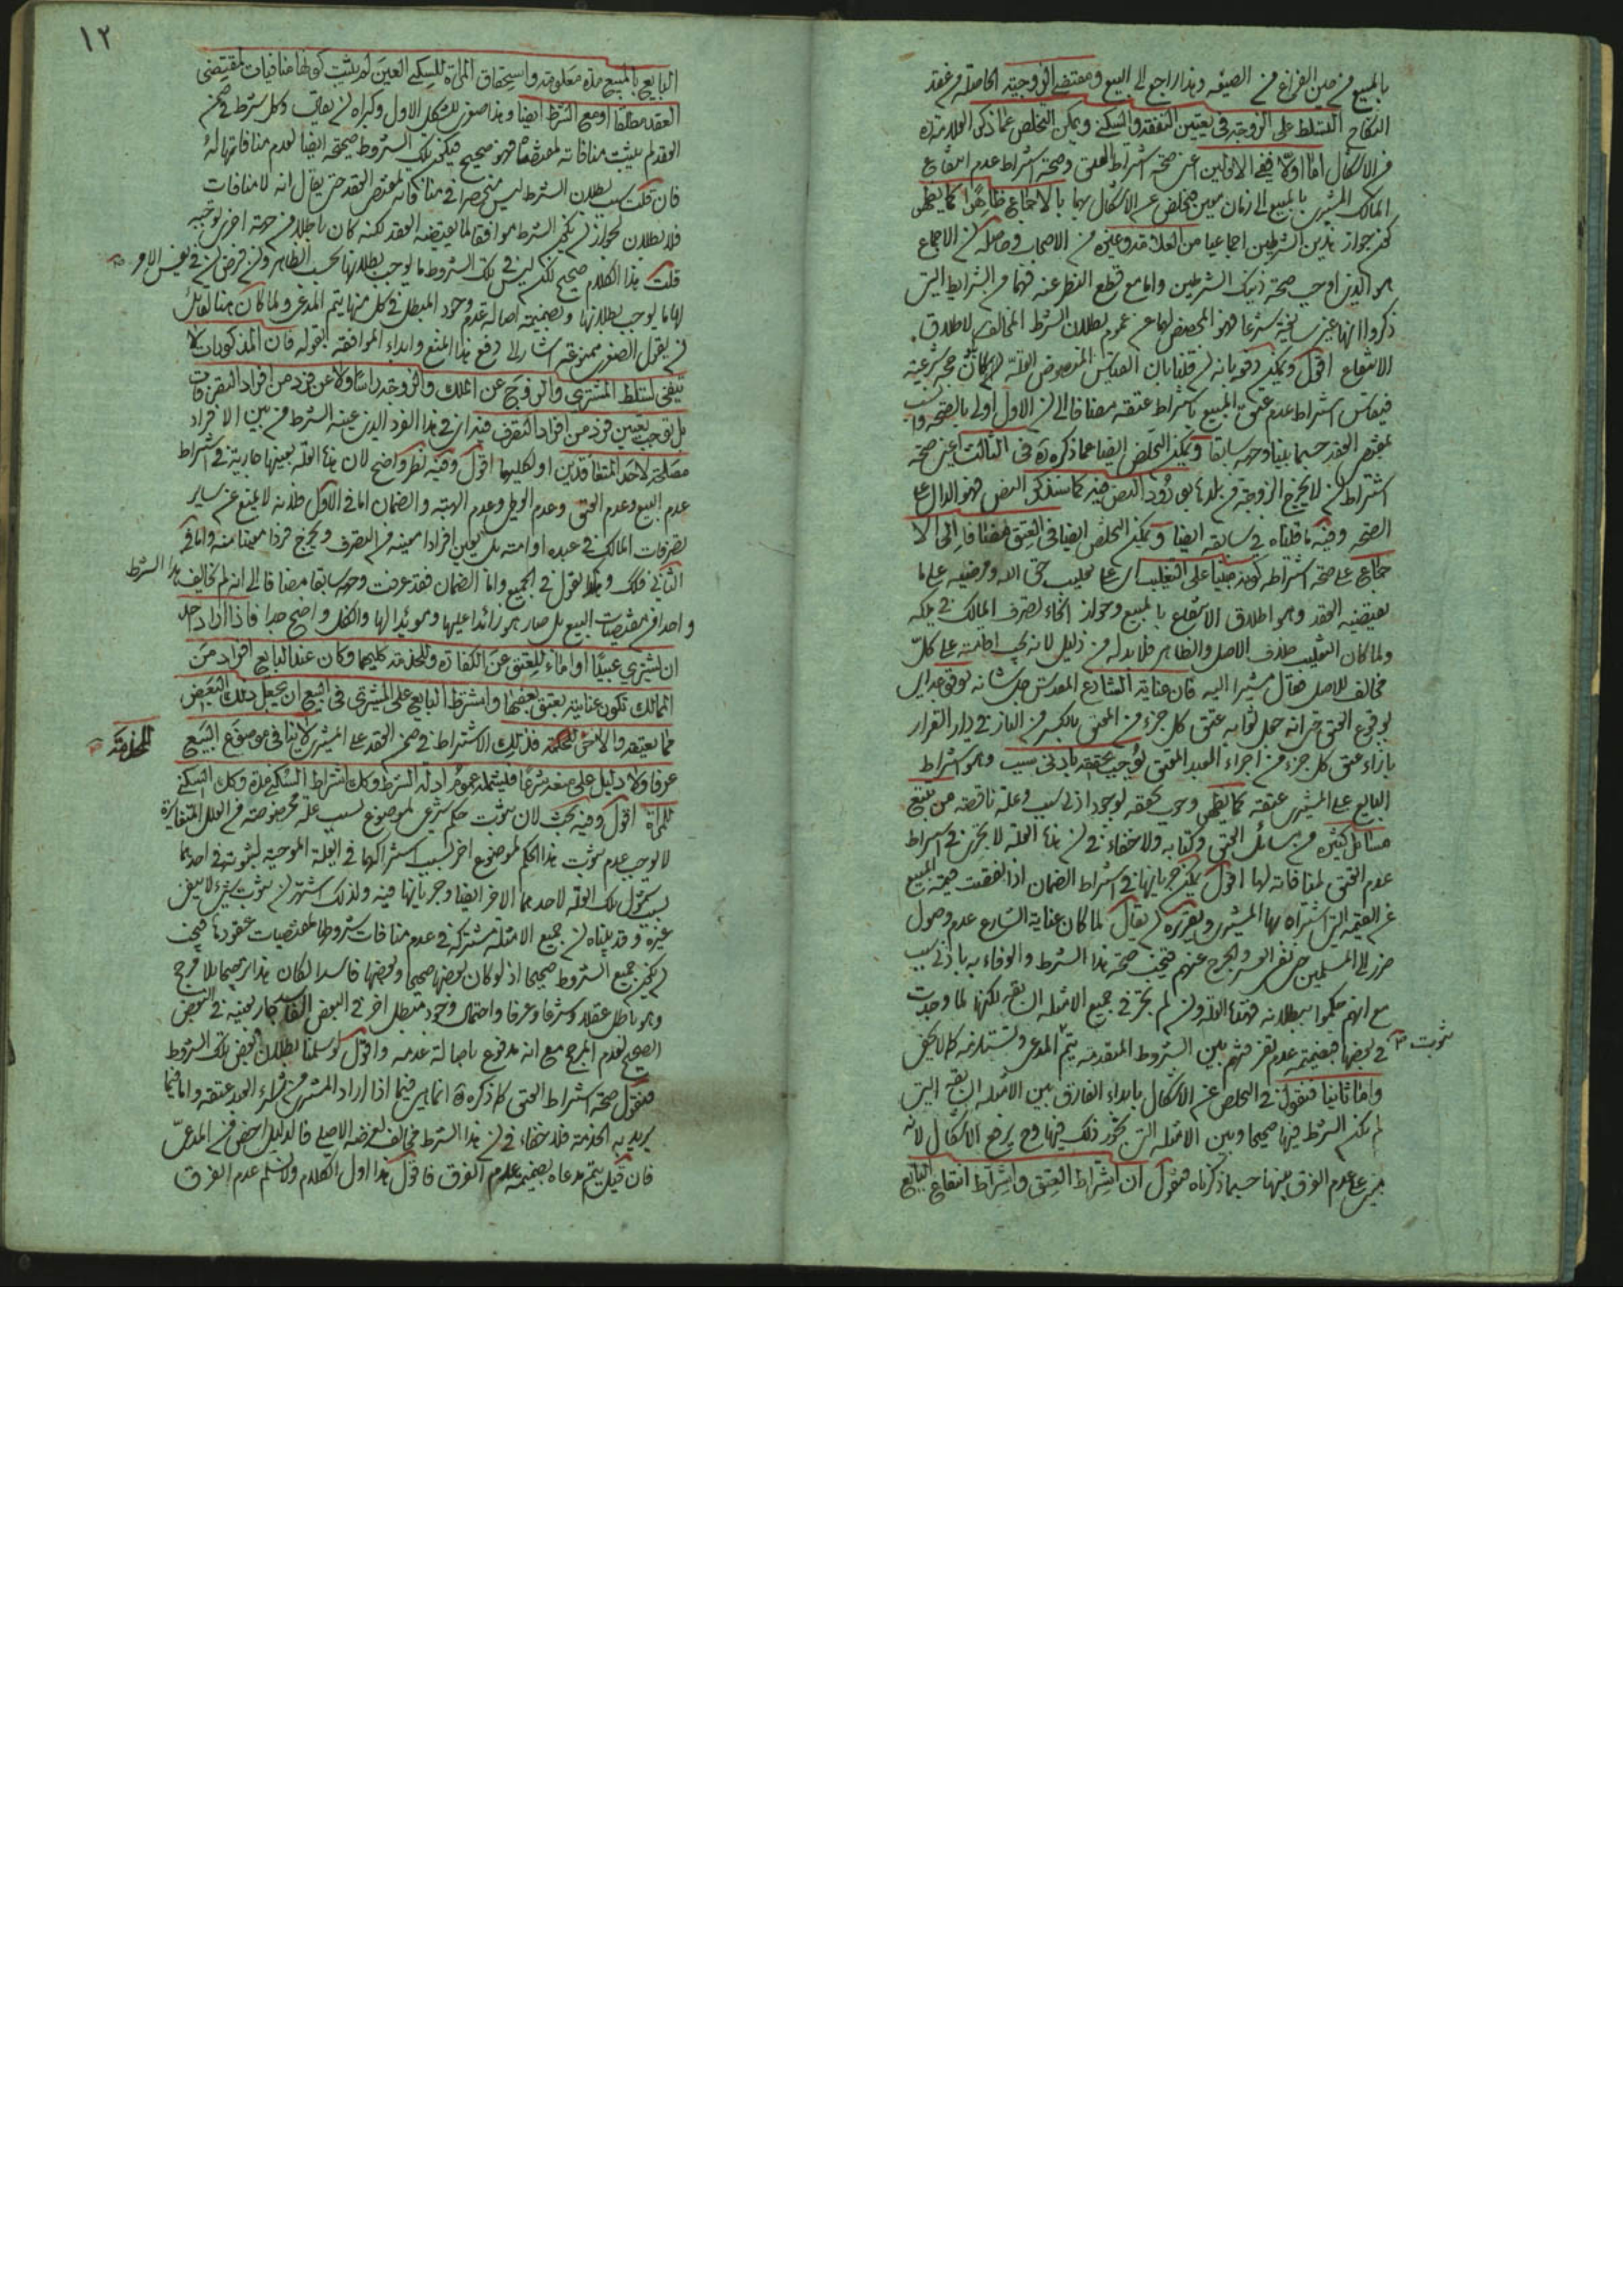 بالمبيع من حين الفراغ من الصيغه وهذا راجع الى البيع ومقتضى الزوجية الحاصلة من عقد
النكاح التسلط على الزوجة في تعيين النفقة والسكنى ويمكن التخلص عما ذكره العلامة ره
من الاشكال اما اولا ففي الاولين اعني صحة اشتراط العتق وصحة اشتراط عدم انتفاع
المالك المشترى بالمبيع الى زمان معين فيتخلص عن الاشكال بهما بالاجماع ظاهرا كما يظهر
كون جواز هذين الشرطين اجماعيا من العلامة وغيره من الاصحاب وحاصله ان الاجماع
هو الذي اوجب صحة ذينك الشرطين واما مع قطع النظر عنه فهما من الشرايط التي
ذكروا انها غير سايغة شرعا فهو المخصص لهما عن عموم بطلان الشرط المخالف لاطلاق
الانتفاع اقول ويمكن دفعه بانه ان قلنا بان القياس المنصوص العلة حجة شرعية
فيقاس اشتراط عدم عتق المبيع باشتراط عتقه مضافا الى ان الاول اولى بالصحة
بمقتضى العقد حسبما بيناه وجهه سابقا ويمكن التخلص ايضا عما ذكره ره في الثالث اعني صحة
اشتراط ان لا يخرج الزوجة من بلدها بورود النص فيه كما سنذكر النص فهو الدال على
الصحة وفيه ما قلناه في سابقه ايضا ويمكن التخلص ايضا في العتق مضافا الى الا
جماع على صحة اشتراطه كونه مبنيا على التغليب اى على تغليب حق الله ومرضيه على ما
يقتضيه العقد وهو اطلاق الانتفاع بالمبيع وجواز انحاء تصرف المالك في ملكه
ولما كان التغليب خلاف الاصل والظاهر فلا بد له من دليل لانه يجب اقامته على كل
مخالف للاصل فقال مشيرا اليه فان عناية الشارع المقدس جل شانه
بوقوع العتق حتى انه جعل ثوابه عتق كل جزء من المعتق بالكسر من النار في دار القرار
بازاء عتق كل جزء من اجزاء العبد المعتق يوجب تحققه بادنى سبب وهو اشتراط
البايع على المشترى عتقه كما يظهر وجوب تحققه بوجود ادنى سبب وعلة ناقصة من تتبع
مسائل كثيرة من مسائل العتق وكتابه ولا خفاء في ان هذه العلة لا تجرى في اشتراط
عدم العتق لمنافاته لها اقول يمكن جريانها في اشتراط الضمان اذا نقصت قيمة المبيع
عن القيمة التي اشتراه بها المشترى وتقريره ان يقال لما كان عناية الشارع عدم وصول
ضرر الى المسلمين حتى نفى العسر والحرج عنهم فيجب صحة هذا الشرط والوفاء به بادنى سبب
مع انهم حكموا ببطلانه فهذه العلة وان لم تجر في جميع الامثلة السابقه لكنها لما وجدت
في بعضها فبضميمة عدم تفرقتهم بين الشروط المتقدمة يتم المدعى
ثبوت
واما ثانيا فنقول في التخلص عن الاشكال بابداء الفارق بين الامثلة السابقه التي
لم يكن الشرط فيها صحيحا وبين الامثلة التي يجوز ذلك فيها وح يرتفع الاشكال لانه
مبني على عدم الفرق بينها حسبما ذكرناه فنقول ان اشتراط العتق واشتراط انتفاع البايع
١٢
البايع بالمبيع مدة معلومة واستحقاق المراة للسكنى العين لم يثبت كونها منافيات لمقتضى
العقد مطلقا او مع الشرط ايضا وهذا صغرى للشكل الاول وكبراه ان يقال وكل شرط في ضمن
العقد لم يثبت منافاته لمقتضاه فهو صحيح فيكون تلك الشروط صحيحة ايضا لعدم منافاتها له
فان قلت سبب بطلان الشرط ليس منحصرا في منافاته لمقتضى العقد حتى يقال انه لا منافات
فلا بطلان لجواز ان يكون الشرط موافقا لما يقتضيه العقد لكنه كان باطلا من جهة اخرى توجبه
قلت هذا الكلام صحيح لكن ليس في تلك الشروط ما يوجب بطلانها بحسب الظاهر وان فرض ان في نفس الامر
لها ما يوجب بطلانها وبضميمة اصالة عدم وجود المبطل في كل منها يتم المدعى ولما كان هنا لقائل
ان يقول الصغرى ممنوعة اشار الى دفع هذا المنع وابداء الموافقة بقوله فان المذكورات لا
تنفى تسلط المشترى والزوج عن الملك والزوجة راسا ولا عن فرد من افراد التصرفات
بل توجب تعيين فرد من افراد التصرف
مصلحة لاحد المتعاقدين او لكليهما اقول وفيه نظر واضح لان هذه العلة بعينها جارية في اشتراط
عدم البيع وعدم العتق وعدم الوطى وعدم الهبة والضمان اما في الاول فلانه لا يمنع عن ساير
تصرفات المالك في عبده او امته بل يعين افرادا معينة من التصرف ويخرج فردا معينا منه واما في
الثاني فكك وهكذا نقول في الجميع واما الضمان فقد عرفت وجهه سابقا مضافا الى انه لم يخالف هذا الشرط
واحدا من مقتضيات البيع بل صار هو زائدا عليها ومؤيدا لها والكل واضح جدا فاذا اراد احد
ان يشترى عبيدا او اماء للعتق عن الكفارة وللخدمة كليهما وكان عند البايع افراد من
المماليك تكون عنايته بعتق بعضها واشترط البايع على المشترى في البيع ان يجعل ذلك البعض
مما يعتقه والاخرى للخدمة فذلك الاشتراط في ضمن العقد على المشترى لا ينافى موضوع البيع
للخدمة
عرفا ولا دليل على منعه شرعا فليشمله عموم ادلة الشرط وكك اشتراط السكنى مدة وكك السكنى
للمراة اقول وفيه بحث لان ثبوت حكم شرعى لموضوع بسبب علة مخصوصة من العلل المتغايرة
لا يوجب عدم ثبوت هذا الحكم لموضوع اخر بسبب اشتراكهما في العلة الموجبة لثبوته في احدهما
بسبب شمول تلك العلة لاحدهما الاخر ايضا وجريانها فيه ولذلك اشتهر ان ثبوت شىء لا ينفى
غيره وقد بيناه ان جميع الامثلة مشتركة في عدم منافات شروطها لمقتضيات عقودها فيجب
ان يكون جميع الشروط صحيحا اذ لو كان بعضها صحيحا وبعضها فاسدا لكان هذا ترجيحا بلا مرجح
وهو باطل عقلا وشرعا وعرفا واحتمال وجود مبطل اخر في البعض الفاسد جار بعينه في البعض
الصحيح لعدم المرجح مع انه مدفوع باصالة عدمه واقول لو سلمنا بطلان بعض تلك الشروط
فنقول صحة اشتراط العتق كما ذكره ره انما هي فيما اذا اراد المشترى من شراء العبد عتقه واما فيما
يريد به الخدمة فلا خفاء في ان هذا الشرط مخالف لغرضه الاصلى فالدليل اخص من المدعى
فان قيل يتم مدعاه بضميمة عدم الفرق فاقول هذا اول الكلام ولا نسلم عدم الفرق